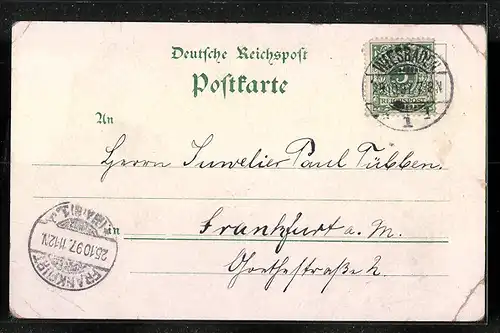 Deutsche Reichspost
Postkarte
WIESBADEN
1
An
Herrn Juwelier Paul Tübben.
in
Frankfurt a. M.
Goethestraße 2.
FRANKFURT
25.10.97. 11-12 V.
(MAIN) 1.